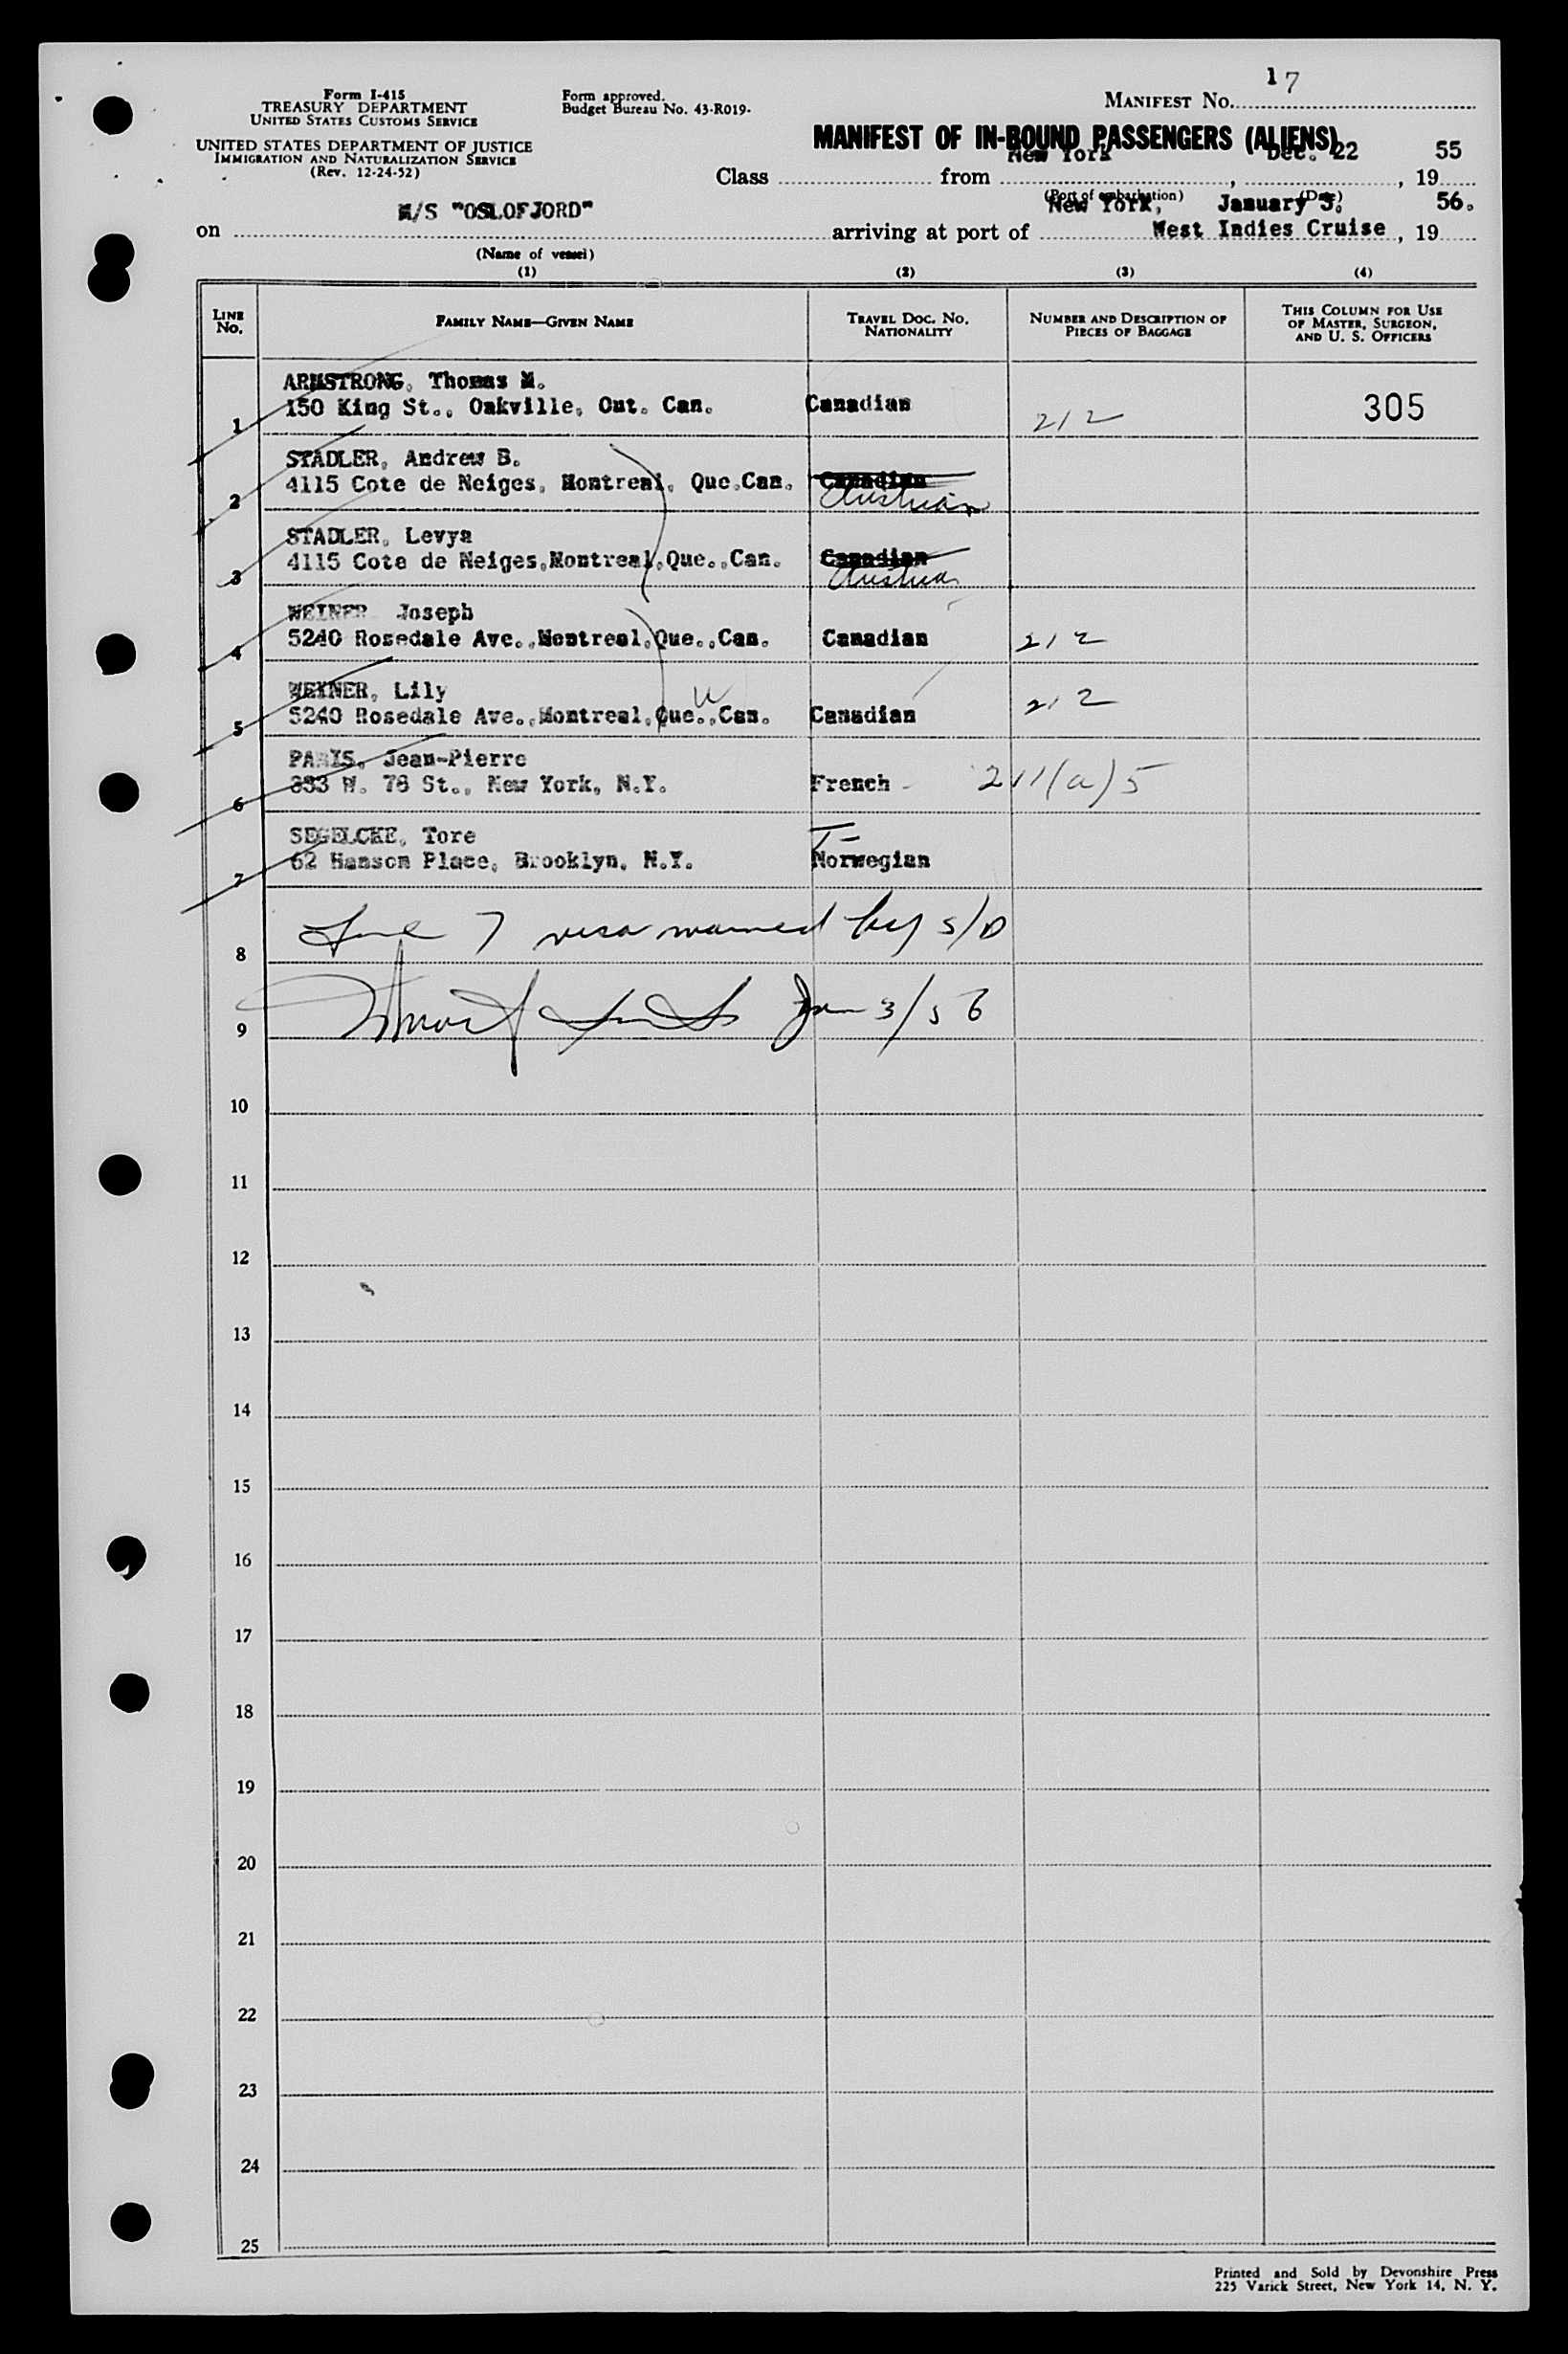 17
Form I-415
TREASURY DEPARTMENT
UNITED STATES CUSTOMS SERVICE
UNITED STATES DEPARTMENT OF JUSTICE
IMMIGRATION AND NATURALIZATION SERVICE
(Rev. 12-24-52)
Form approved.
Budget Bureau No. 43-R019-
MANIFEST NO.
MANIFEST OF IN-BOUND PASSENGERS (ALIENS)
New York Dec. 22 55
Class from , , 19
(Port of embarkation) (Date)
M/S "OSLOFJORD" New York, January 3. 56.
on arriving at port of West Indies Cruise , 19
(Name of vessel)
(1) (2) (3) (4)
LINE NO.
FAMILY NAME—GIVEN NAME
TRAVEL DOC. NO. NATIONALITY
NUMBER AND DESCRIPTION OF PIECES OF BAGGAGE
THIS COLUMN FOR USE OF MASTER, SURGEON, AND U. S. OFFICERS
ARMSTRONG, Thomas M.
1 150 King St., Oakville, Ont. Can. Canadian 212 305
STADLER, Andrew B.
2 4115 Cote de Neiges, Montreal, Que.Can. Canadian
Austrian
STADLER, Levya
3 4115 Cote de Neiges,Montreal,Que.,Can. Canadian
Austrian
WEINER Joseph
4 5240 Rosedale Ave.,Montreal,Que.,Can. Canadian 212
WEINER, Lily
5 5240 Rosedale Ave.,Montreal,Que.,Can. Canadian 212
PARIS, Jean-Pierre
6 333 W. 78 St., New York, N.Y. French 211(a)5
SEGELCKE, Tore
7 62 Hanson Place, Brooklyn, N.Y. Norwegian
8 Line 7 visa waived by S/D
9 Jan 3/56
10
11
12
13
14
15
16
17
18
19
20
21
22
23
24
25
Printed and Sold by Devonshire Press
225 Varick Street, New York 14, N. Y.